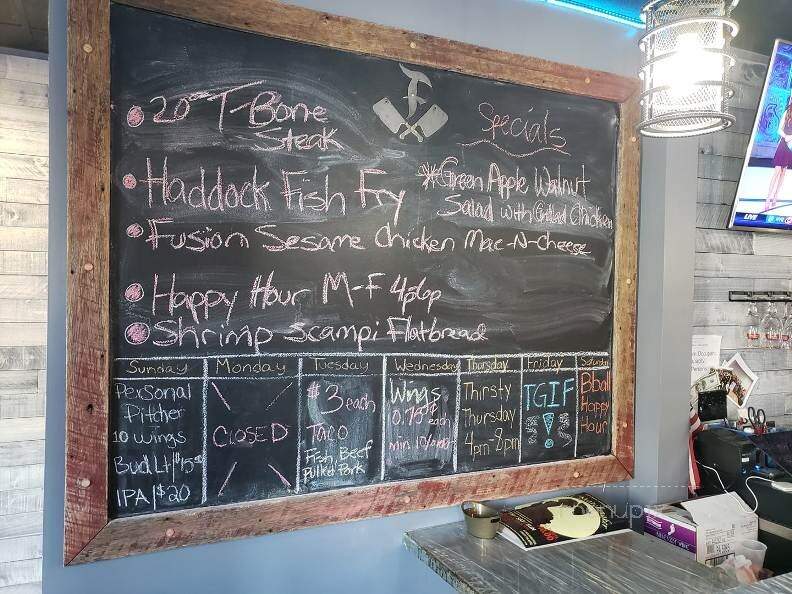 20.00 T-Bone
Steak
Specials
Haddock Fish Fry
*Green Apple Walnut
Salad with Grilled Chicken
Fusion Sesame Chicken Mac-N-Cheese
Happy Hour M-F 4p6p
Shrimp Scampi Flatbread
Sunday
Personal
Pitcher
10 wings
Bud Lt $15
IPA $20
Monday
CLOSED
Tuesday
$3 each
Taco
Fish, Beef
Pulled Pork
Wednesday
Wings
0.75¢ each
min 10/order
Thursday
Thirsty
Thursday
4pm-8pm
Friday
TGIF
!
Saturday
Bball
Happy
Hour
LIVE